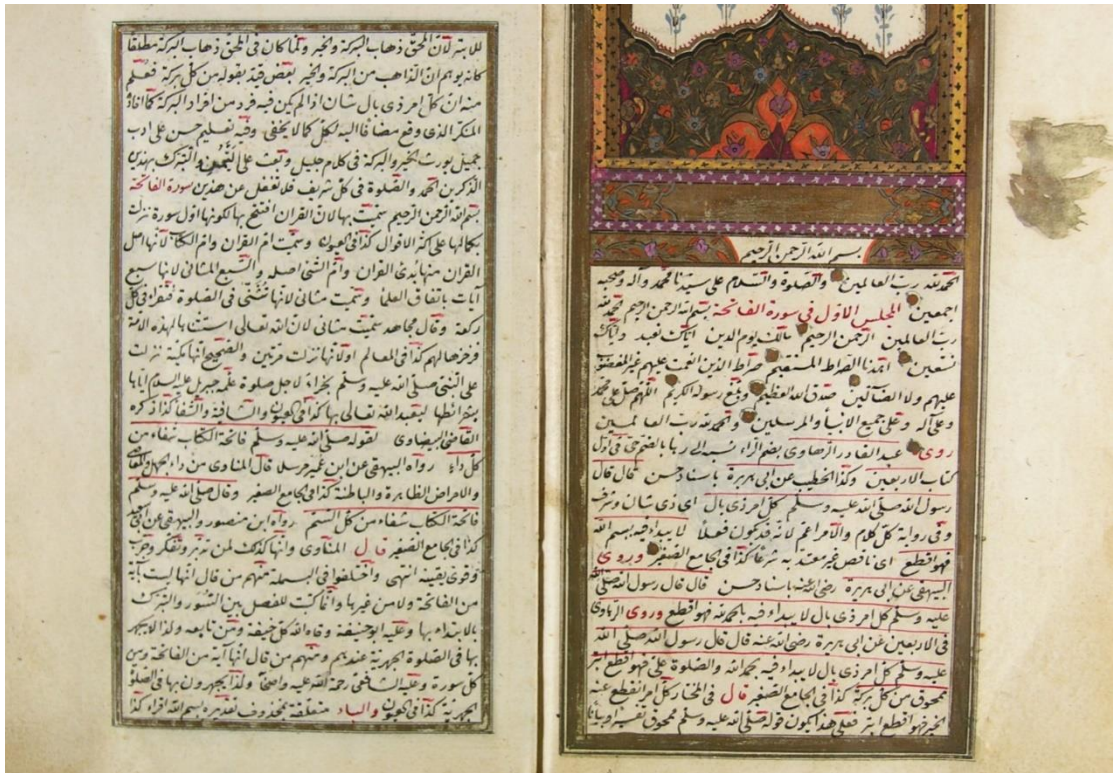 بسم الله الرحمن الرحيم
الحمد لله رب العالمين والصلوة والسلام على سيدنا محمد وآله وصحبه
اجمعين المجلس الاول في سورة الفاتحة بسم الله الرحمن الرحيم الحمد لله
رب العالمين الرحمن الرحيم مالك يوم الدين اياك نعبد واياك
نستعين اهدنا الصراط المستقيم صراط الذين انعمت عليهم غير المغضوب
عليهم ولا الضالين صدق الله العظيم وبلغ رسوله الكريم اللهم صل على محمد
وعلى آله وعلى جميع الانبياء والمرسلين والحمد لله رب العالمين
روى عبد القادر الرهاوى بضم الراء نسبة الى رها بالضم حى فى اول
كتاب الاربعين وكذا الخطيب عن ابى هريرة باسناد حسن قال قال
رسول الله صلى الله عليه وسلم كل امر ذى بال اى ذى شان وشرف
وفى رواية كل كلام والامر اعم لانه قد يكون فعلا لا يبداء فيه ببسم الله
فهو اقطع اى ناقص غير معتد به شرعا كذا فى الجامع الصغير وروى
البيهقى عن ابى هريرة رضى الله عنه باسناد حسن قال قال رسول الله صلى الله
عليه وسلم كل امر ذى بال لا يبداء فيه بالحمد لله فهو اقطع وروى الرهاوى
فى الاربعين عن ابى هريرة رضى الله عنه قال قال رسول الله صلى الله
عليه وسلم كل امر ذى بال لا يبداء فيه بحمد الله والصلوة على فهو اقطع ابتر
ممحوق من كل بركة كذا فى الجامع الصغير قال فى المختار كل امر انقطع عنه
الخير فهو اقطع ابتر فعلى هذا يكون قوله صلى الله عليه وسلم ممحوق تفسيرا وبيانا
للابتر لان المحق ذهاب البركة والخير ولما كان فى المحق ذهاب البركة مطلقا
كانه يوهم ان الذاهب من البركة والخير بعض قيده بقوله من كل بركة فعلم
منه ان كل امر ذى بال شان اذا لم يكن فيه فرد من افراد البركة كما افاده
المنكر الذى وقع مضافا اليه لكل كما لا يخفى وفيه تعليم حسن على ادب
جميل يورث الخير والبركة فى كلام جليل وبعث على التيمن والتبرك بهذين
الذكرين الحمد والصلوة فى كل شريف فلا تغفل عن هذين سورة الفاتحة
بسم الله الرحمن الرحيم سميت بها لان القران افتتح بها لكونها اول سورة نزلت
بكمالها على اكثر الاقوال كذا فى العيون وسميت ام القران وام الكتاب لانها اصل
القران منها بدئ القران وام الشئ اصله والسبع المثانى لانها سبع
آيات باتفاق العلماء وسميت مثانى لانها تثنى فى الصلوة فتقراء فى كل
ركعة وقال مجاهد سميت مثانى لان الله تعالى استثناها لهذه الامة
فذخرها لهم كذا فى المعالم او لانها نزلت مرتين والصحيح انها مكية نزلت
على النبى صلى الله عليه وسلم بحراء لاجل صلوة علمه جبريل عليه السلام اياها
بشرائطها ليعبد الله تعالى بها كذا فى العيون والشافية والشفاء كذا ذكره
القاضى البيضاوى لقوله صلى الله عليه وسلم فاتحة الكتاب شفاء من
كل داء رواه البيهقى عن ابن عمير مرسلا قال المناوى من داء الجهل والمعاصى
والامراض الظاهرة والباطنة كذا فى الجامع الصغير وقال صلى الله عليه وسلم
فاتحة الكتاب شفاء من كل السم رواه ابن منصور والبيهقى عن
كذا فى الجامع الصغير قال المناوى وانها كذلك لمن تدبر وتفكر وجرب
وقوى يقينه انتهى واختلفوا فى البسملة منهم من قال انها ليست بآية
من الفاتحة ولا من غيرها وانما كتبت للفصل بين السور والتبرك
بالابتداء بها وعليه ابو حنيفة وفاه الله كل خيفة ومن تابعه ولذا لا يجهر
بها فى الصلوة الجهرية عندهم ومنهم من قال انها آية من الفاتحة ومن
كل سورة وعليه الشافعى رحمة الله عليه واصحابه ولذا يجهرون بها فى الصلوة
الجهرية كذا فى العيون والباء متعلقة بمحذوف تقديره بسم الله اقراء كذا